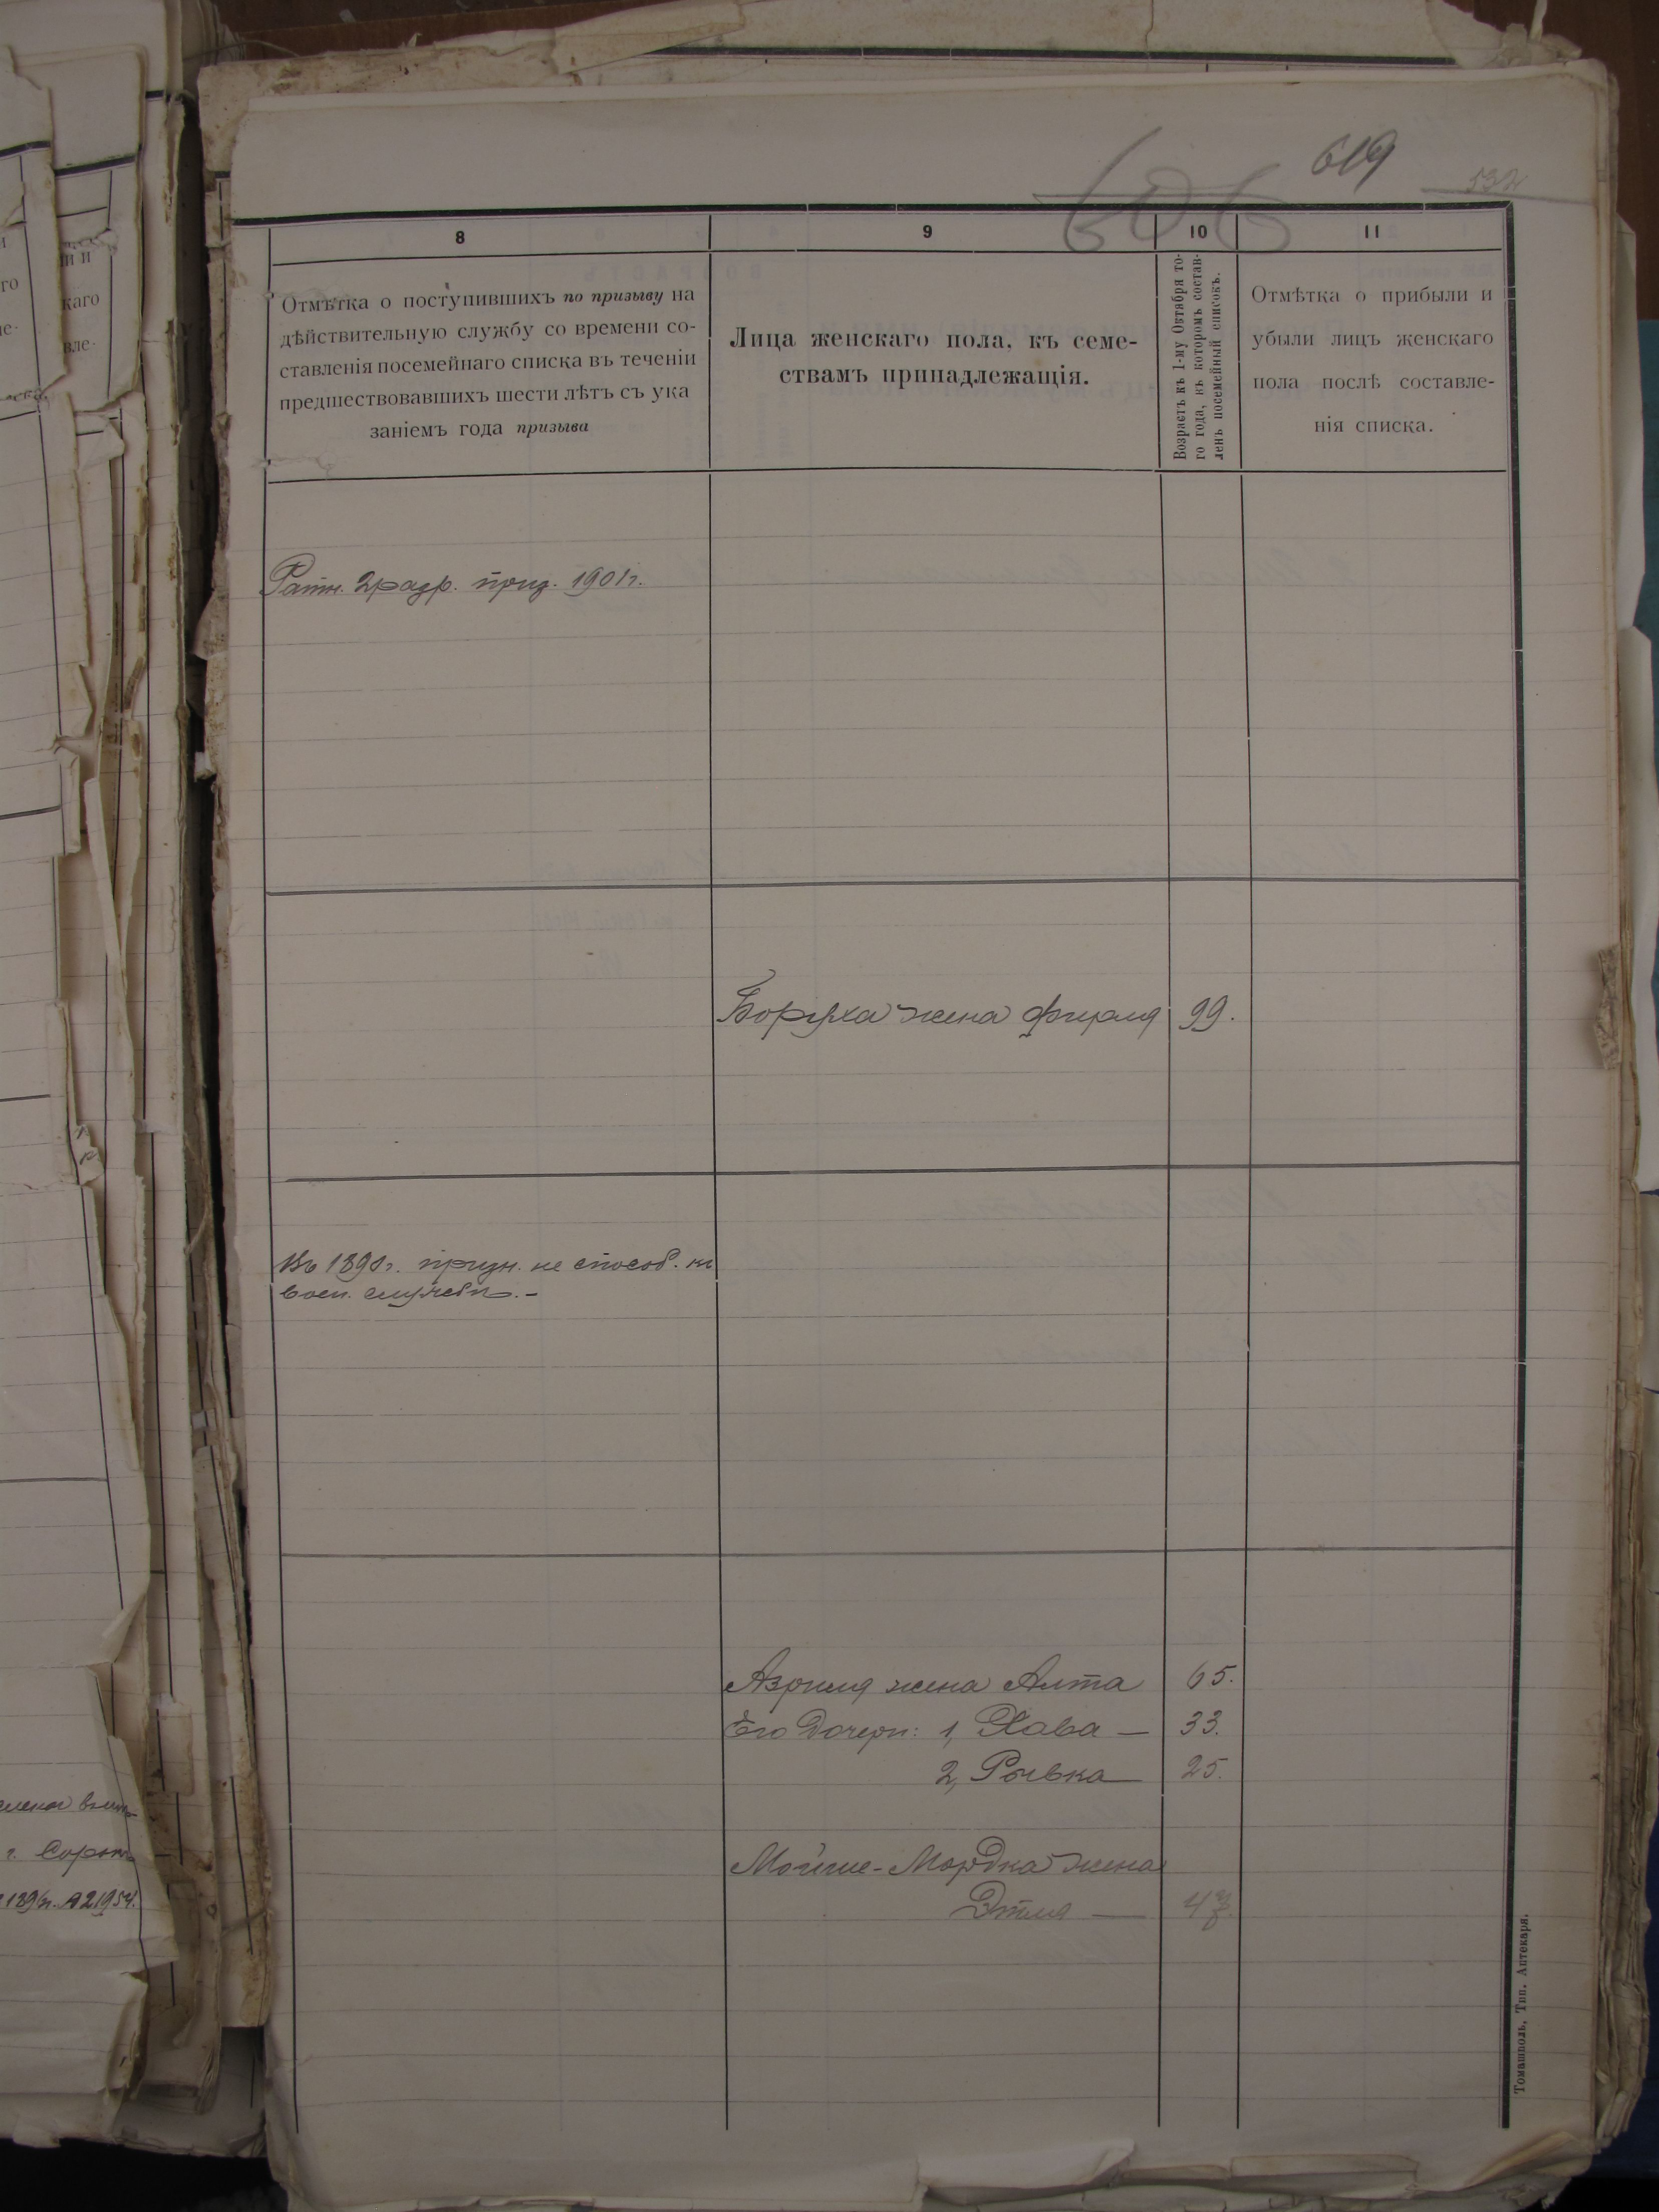 619
606
532
8
9
10
11
Отмѣтка о поступившихъ по призыву на
дѣйствительную службу со времени со-
ставленія посемейнаго списка въ теченіи
предшествовавшихъ шести лѣтъ съ ука
заніемъ года призыва
Лица женскаго пола, къ семе-
ствамъ принадлежащія.
Возрастъ къ 1-му Октября то-
го года, въ которомъ состав-
ленъ посемейный списокъ.
Отмѣтка о прибыли и
убыли лицъ женскаго
пола послѣ составле-
нія списка.
Ратн. 2 разр. приз. 1901 г.
Боруха жена Фирля 99.
Въ 1890 г. призн. не способ. къ
воен. службѣ. –
Азриля жена Алта 65.
Его дочери: 1, Хава — 33.
2, Рывка — 25.
Мойше-Мордка жена
Этля —
г. Сорок
Томашполь, Тип. Аптекаря.